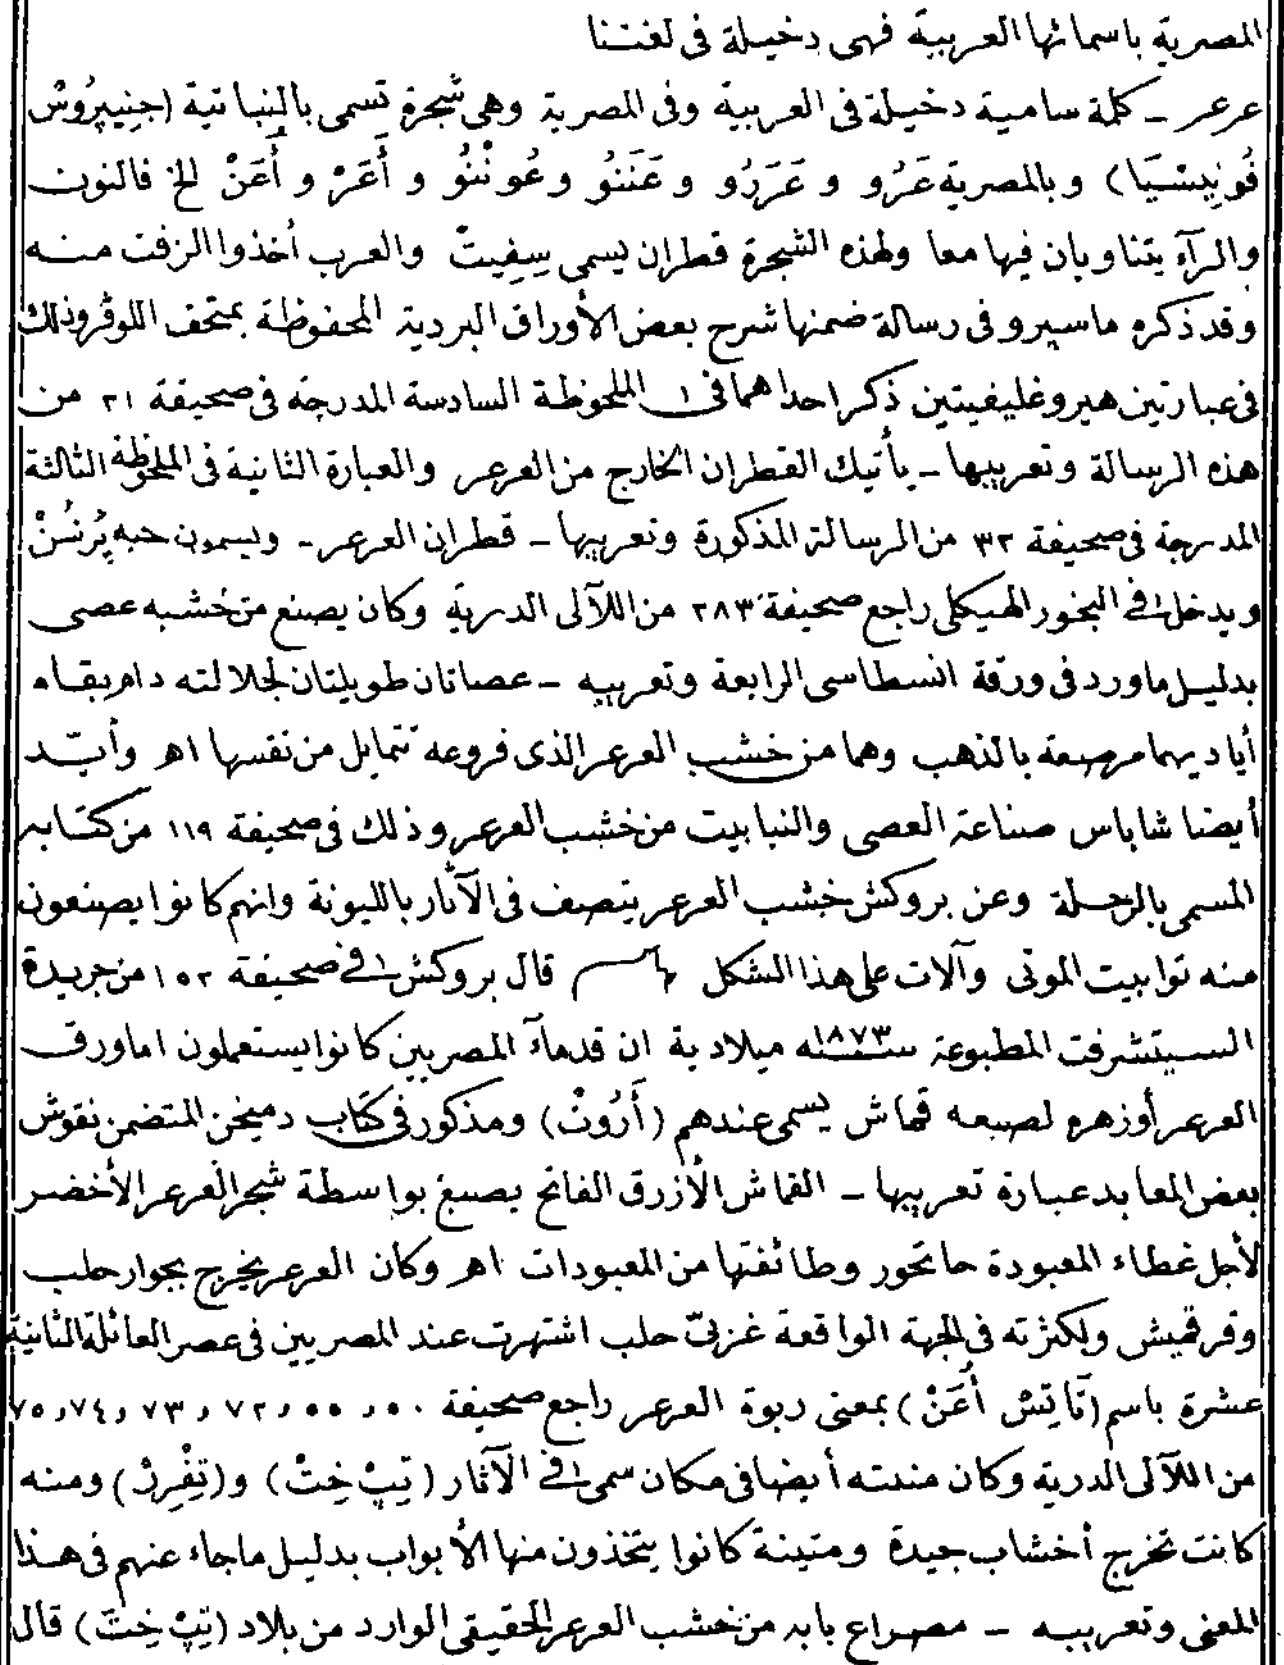 المصرية باسمائها العربية فهى دخيلة فى لغتنا
عرعر ـ كلمة سامية دخيلة فى العربية وفى المصرية وهى شجرة تسمى بالنباتية (جِنِيپِرُوسْ
فُونِيسْيَا) وبالمصرية عَرُو و عَرَرُو و عَنَنُو وعُونْنُو و أَعَرْ و أَعَنْ الخ فالنون
والرآء يتناوبان فيها معا ولهذه الشجرة قطران يسمى سِفِيتْ والعرب أخذوا الزفت منه
وقد ذكره ماسپرو فى رسالة ضمنها شرح بعض الأوراق البردية المحفوظة بمتحف اللوڤر وذلك
فى عبارتين هيروغليفيتين ذكر احداهما فى الملحوظة السادسة المدرجة فى صحيفة ٢١ من
هذه الرسالة وتعريبها ـ يأتيك القطران الخارج من العرعر والعبارة الثانية فى الملحوظة الثالثة
المدرجة فى صحيفة ٣٢ من الرسالة المذكورة وتعريبها ـ قطران العرعر ـ ويسمون حبه پُرنُسْنْ
ويدخل فى البخور الهيكلى راجع صحيفة ٢٨٣ من اللآلى الدرية وكان يصنع من خشبه عصى
بدليل ماورد فى ورقة انسطاسى الرابعة وتعريبه ـ عصاتان طويلتان لجلالته دام بقاه
أياديهما مرصعة بالذهب وهما من خشب العرعر الذى فروعه تتمايل من نفسها اه وأيّد
أيضا شاباس صناعة العصى والنبابيت من خشب العرعر وذلك فى صحيفة ١١٩ من كتابه
المسمى بالرحلة وعن بروكش خشب العرعر يتصف فى الآثار بالليونة وانهم كانوا يصنعون
منه توابيت الموتى وآلات على هذا الشكل قال بروكش فى صحيفة ١٥٢ من جريدة
السيتشرفت المطبوعة سنة ١٨٧٣ ميلادية ان قدمآء المصريين كانوا يستعملون اما ورق
العرعر أو زهره لصبعه قماش يسمى عندهم (أَرُوتْ) ومذكور فى كتاب دميخن المتضمن نقوش
بعض المعابد عبارة تعريبها ـ القماش الأزرق الفاتح يصبغ بواسطة شجر العرعر الأخضر
لأجل غطاء المعبودة حاتحور وطائفتها من المعبودات اه وكان العرعر يخرج بجوار حلب
وقرقميش ولكثرته فى الجهة الواقعة غربىّ حلب اشتهرت عند المصريين فى عصر العائلة الثانية
عشرة باسم (تَاتِسْ أَعَنْ) بمعنى ربوة العرعر راجع صحيفة ٥٠، ٥٥، ٧٢، ٧٣، ٧٤، ٧٥
من اللآلى الدرية وكان منبته أيضا فى مكان سمى فى الآثار (تِپْ خِتْ) و(تِفْرِرْ) ومنه
كانت تخرج أخشاب جيدة ومتينة كانوا يتخذون منها الأبواب بدليل ماجاء عنهم فى هذا
المعنى وتعريبه ـ مصراع بابه من خشب العرعر الحقيقى الوارد من بلاد (تِپْ خِتْ) قال